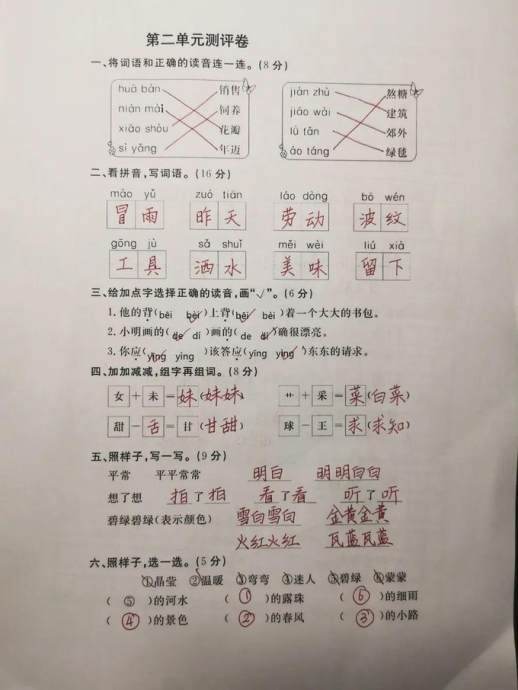 第二单元测评卷
一、将词语和正确的读音连一连。(8分)
huā bàn 销售 jiàn zhù 熬糖
nián mài 饲养 jiāo wài 建筑
xiāo shòu 花瓣 lǜ tǎn 郊外
sì yǎng 年迈 áo táng 绿毯
二、看拼音,写词语。(16分)
mào yǔ zuó tiān láo dòng bō wén
冒雨 昨天 劳动 波纹
gōng jù sǎ shuǐ měi wèi liú xià
工具 洒水 美味 留下
三、给加点字选择正确的读音,画“√”。(6分)
1.他的背(bēi bèi)上背(bēi bèi)着一个大大的书包。
2.小明画的(de dí)画的(de dí)确很漂亮。
3.你应(yīng yìng)该答应(yīng yìng)东东的请求。
四、加加减减,组字再组词。(8分)
女+未=妹(妹妹) 艹+采=菜(白菜)
甜-舌=甘(甘甜) 球-王=求(求知)
五、照样子,写一写。(9分)
平常 平平常常 明白 明明白白
想了想 拍了拍 看了看 听了听
碧绿碧绿(表示颜色) 雪白雪白 金黄金黄
火红火红 瓦蓝瓦蓝
六、照样子,选一选。(5分)
①晶莹 ②温暖 ③弯弯 ④迷人 ⑤碧绿 ⑥蒙蒙
(⑤)的河水 (①)的露珠 (⑥)的细雨
(④)的景色 (②)的春风 (③)的小路